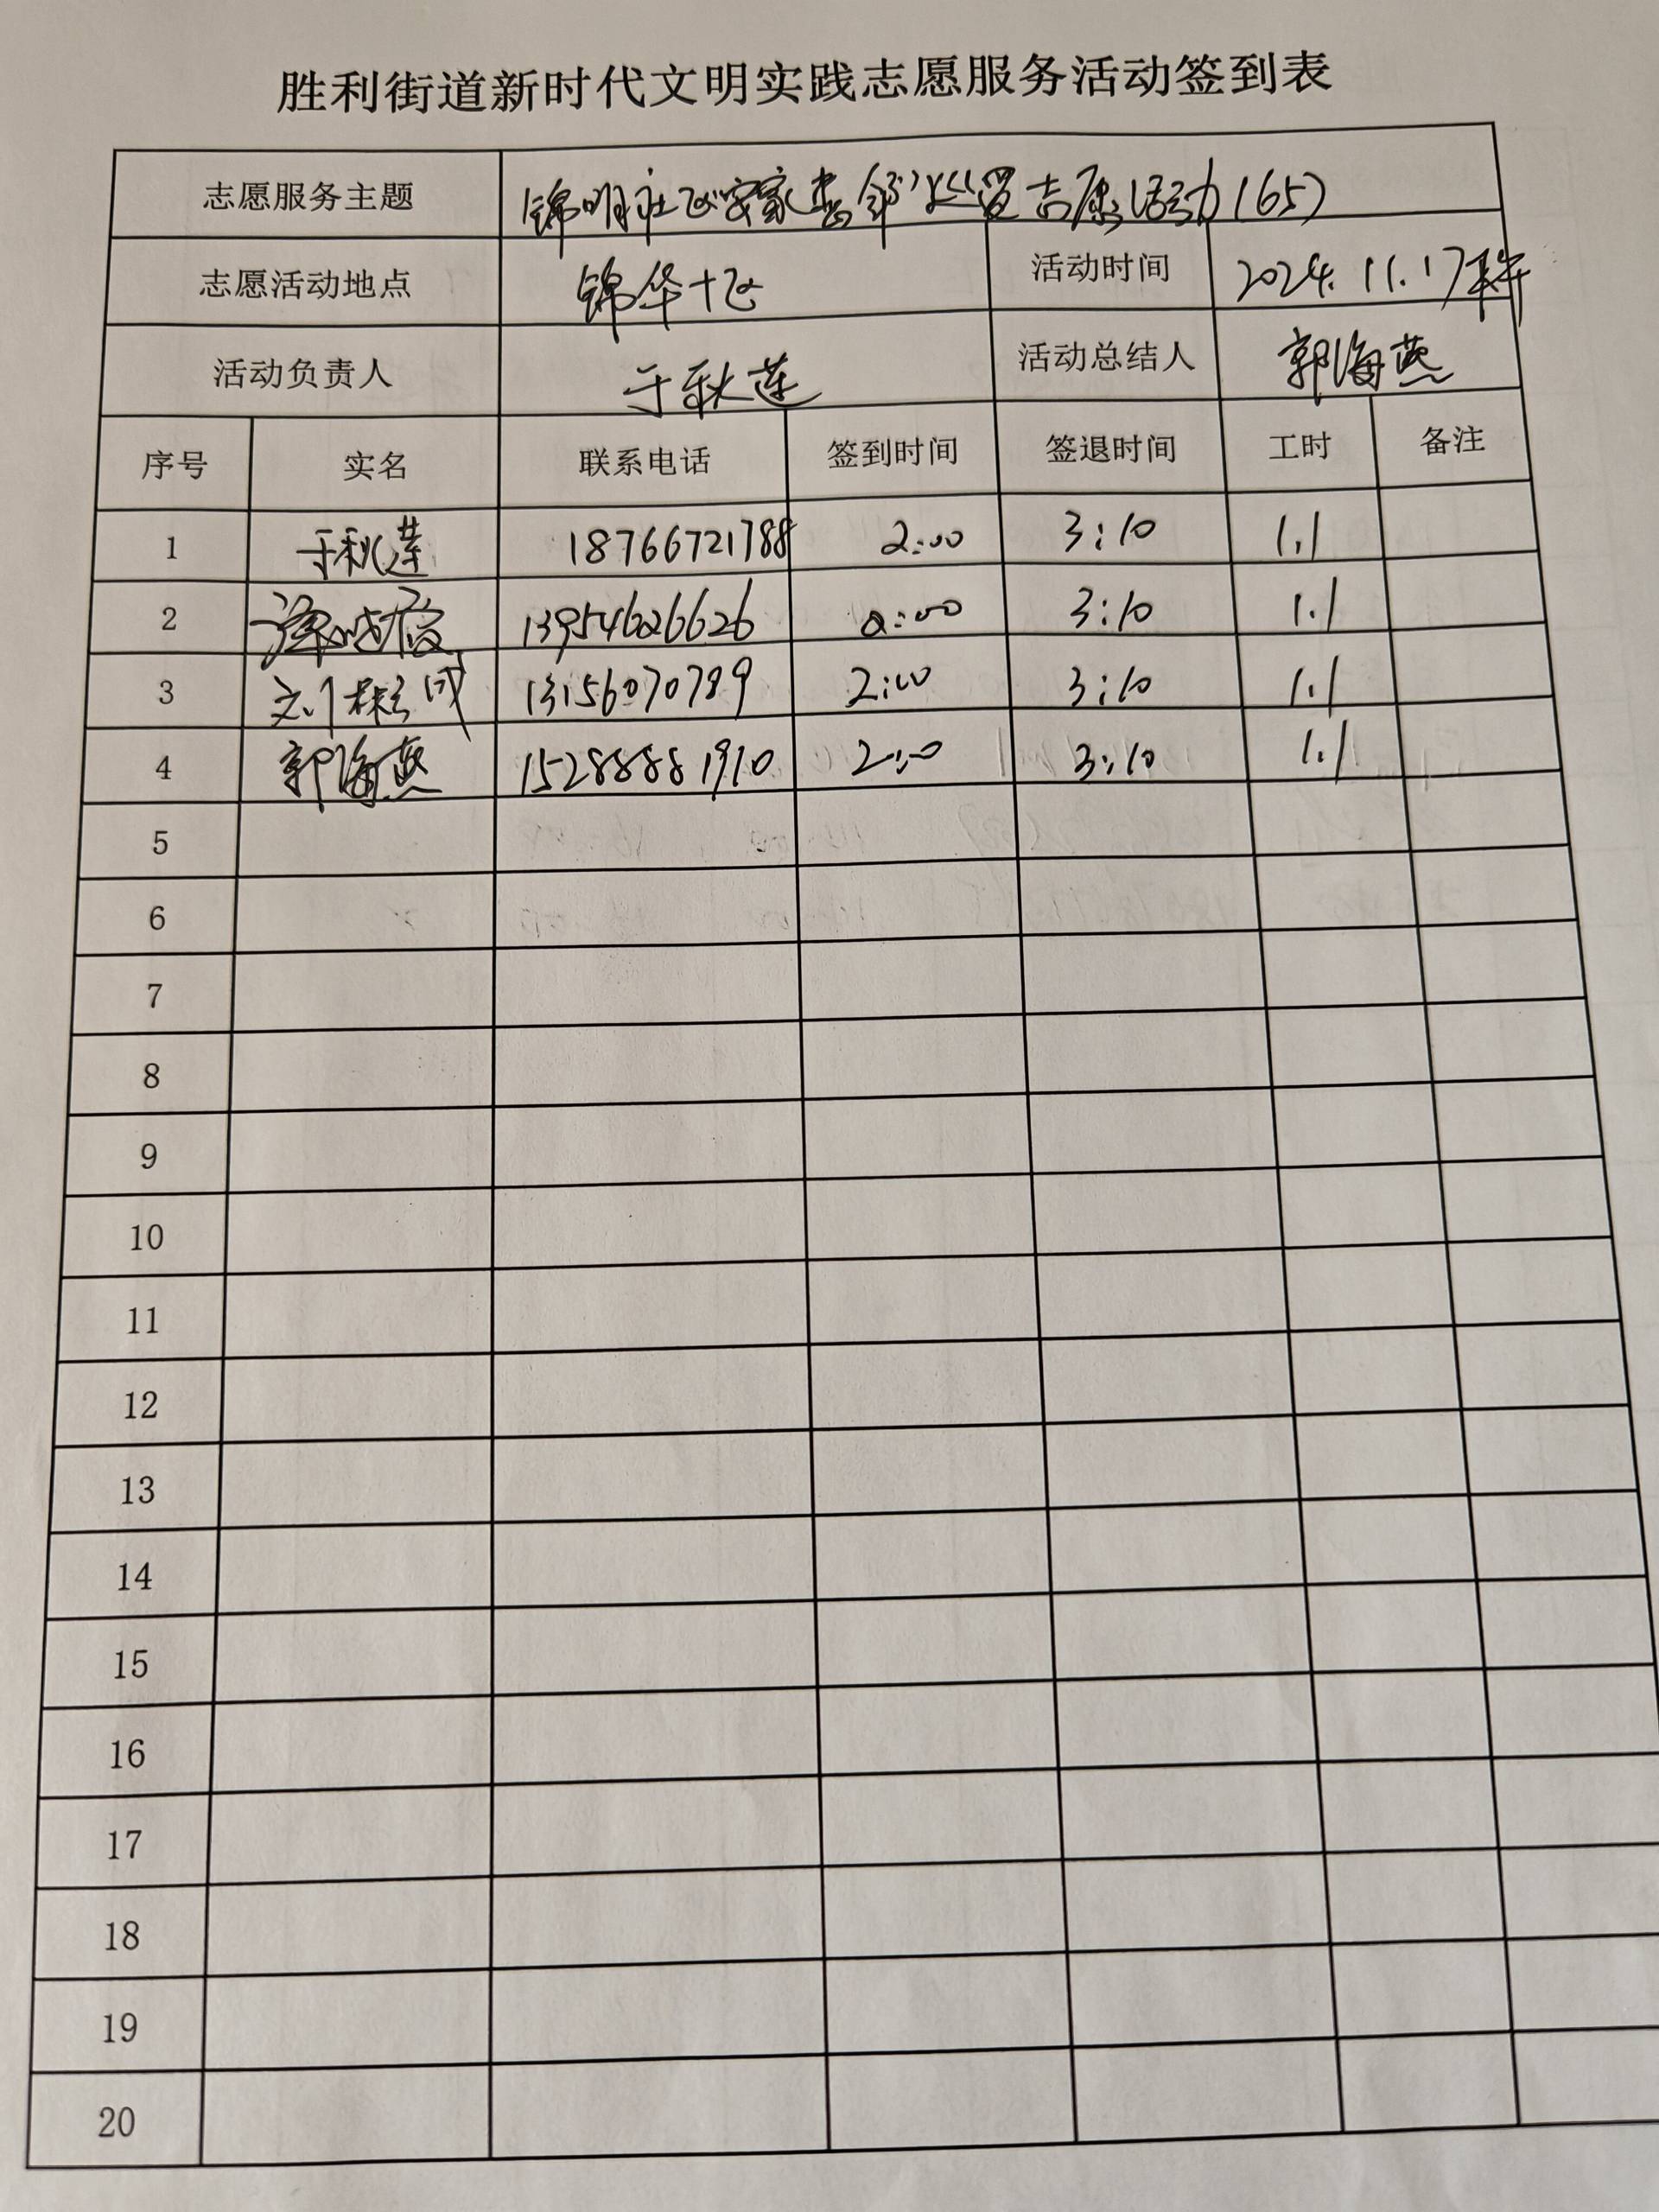 胜利街道新时代文明实践志愿服务活动签到表
志愿服务主题 锦明社区安家惠邻 活动(65)
志愿活动地点 锦华十区 活动时间 2024.11.17
活动负责人 于秋莲 活动总结人 郭海燕
序号 实名 联系电话 签到时间 签退时间 工时 备注
1 于秋莲 18766721788 2:00 3:10 1.1
2 13954626626 2:00 3:10 1.1
3 13156070789 2:00 3:10 1.1
4 郭海燕 15288881910 2:00 3:10 1.1
5
6
7
8
9
10
11
12
13
14
15
16
17
18
19
20